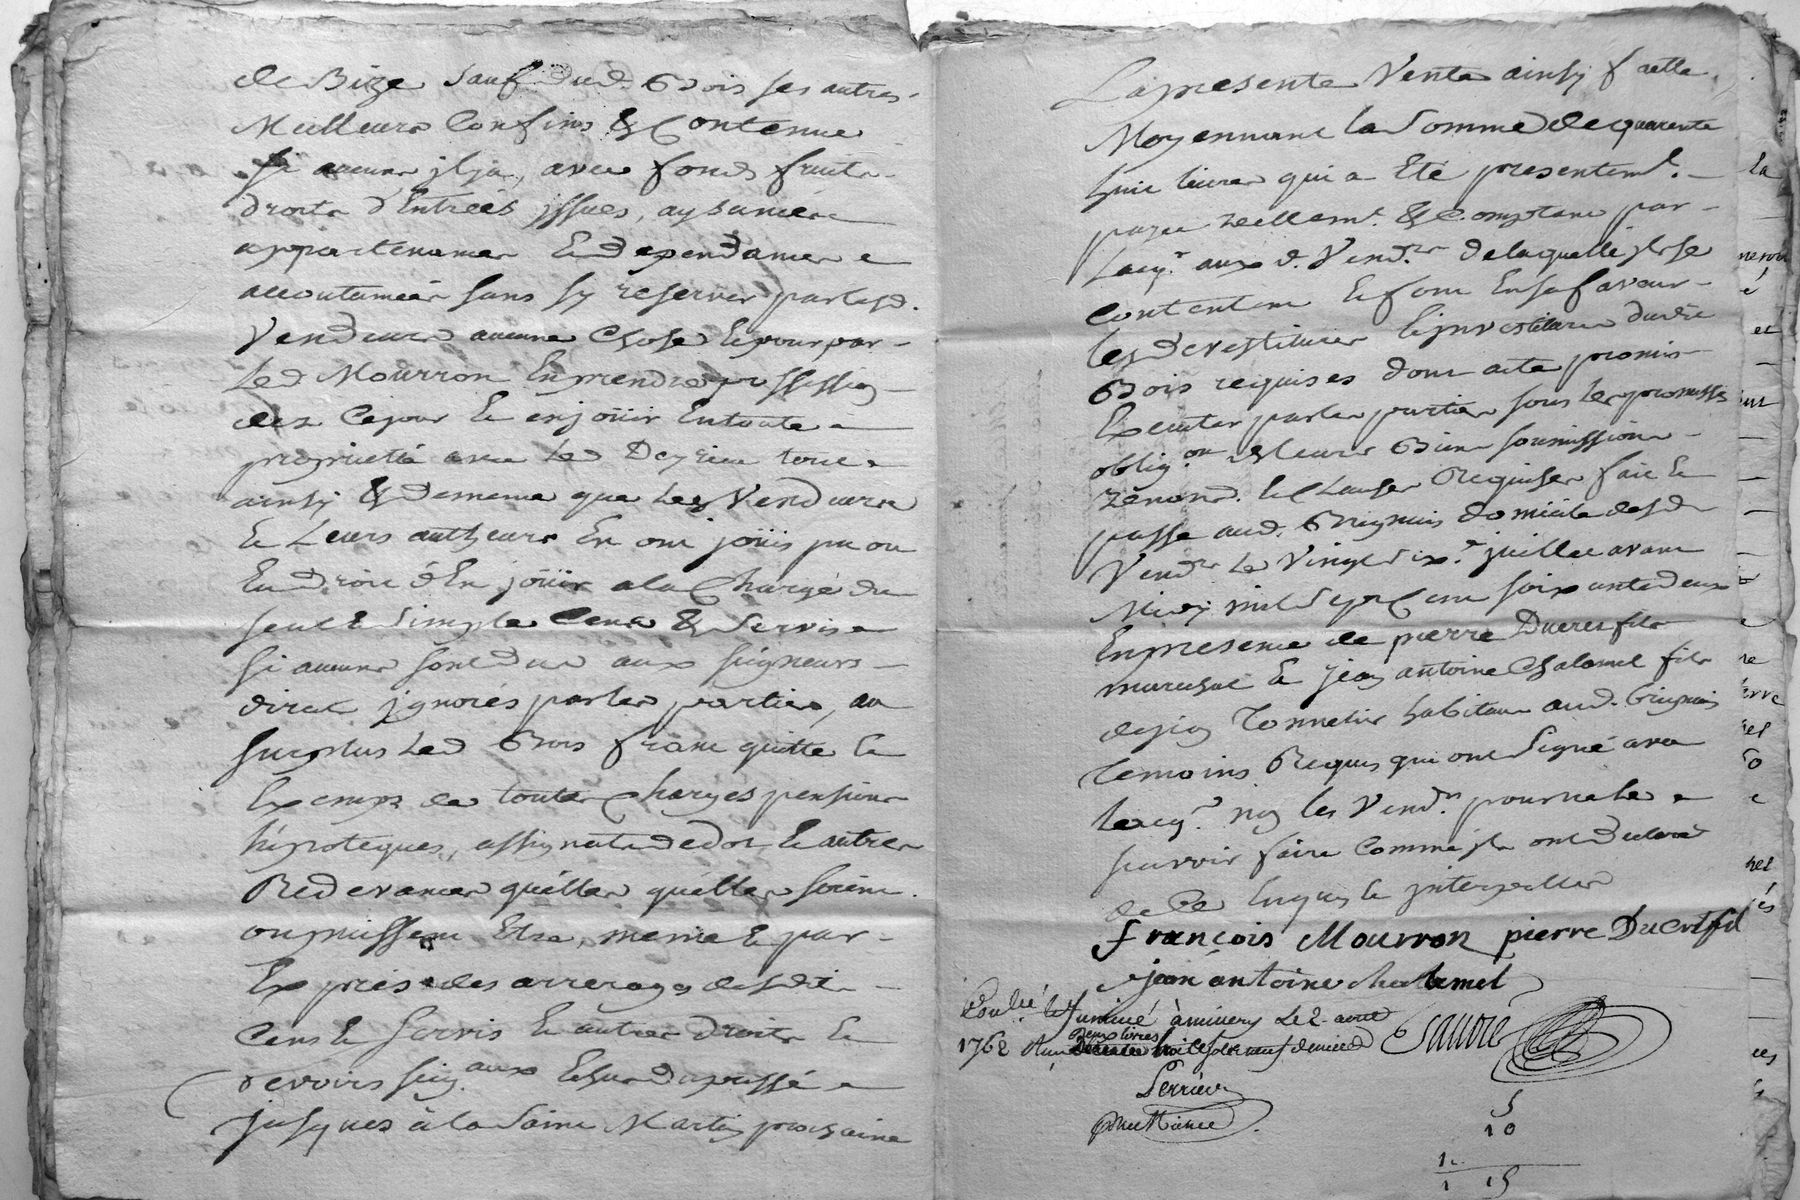 de Bize sauf dud. Bois ses autres
Meilleurs Confins & Contenue
Si aucuns jlya, avec fonds fruits
droits d'Entrées jssues, aysances
appartenances Et dependances
accoutumées sans sy reserver par lesd.
Vendeurs aucune Chose Et pour par
Led Mourron En prendre possession
dez Cejour Et en joüir En toute
proprieté avec Led tout
ainsy & dememe que Les Vendeurs
Et Leurs autheurs En ont joüis pu ou
Eu Droit d'En joüir ala Charge du
seul & Simple Cens & Servis
Si aucuns sont dus aux seigneurs
direct jgnorés par les parties, au
surplus Led Bois franc quitte Et
Exempt de toutes Charges pensions
hipoteques, assignats dedot Et autres
Redevances quelles quelles soient
ou puissent Etre, meme Et par
Exprés des arrerages desdit
Cens Et Servis Et autres droits Et
devoirs seig.aux Echus du passé
jusques à la Saint Martin prochaine
La presente Vente ainsy faitte
Moyennant la Somme de quarente
huit livres qui a Eté presentemt.
payée réellemt. & Comptant par
Lacqr. aux d. Vendrs. de laquelle jls se
Contentent Et font En sa faveur
les devestitures Et jnvestitures dudit
Bois requises dont acte promis
Executer par les parties sous Les promesses
oblig.on de leurs Biens soumissions
renond. Et Clauses Requises fait Et
passé aud. Brignais domicile desd
Vendrs Le Vingt six.e juillet avant
Midy mil Sept Cent soixante deux
En presence de pierre Ducret fils
marechal Et jean antoine Chalamel fils
de jean Tonnelier habitans aud. brignais
Temoins Requis qui ont Signé avec
lacqr. non les Vendrs. pour ne le
scavoir faire Comme jls ont declaré
de Ce Enquis Et jnterpellés
françois Mourron pierre Ducret fils
jean antoine chalamel
Conllé &
1762
5
10
1 15